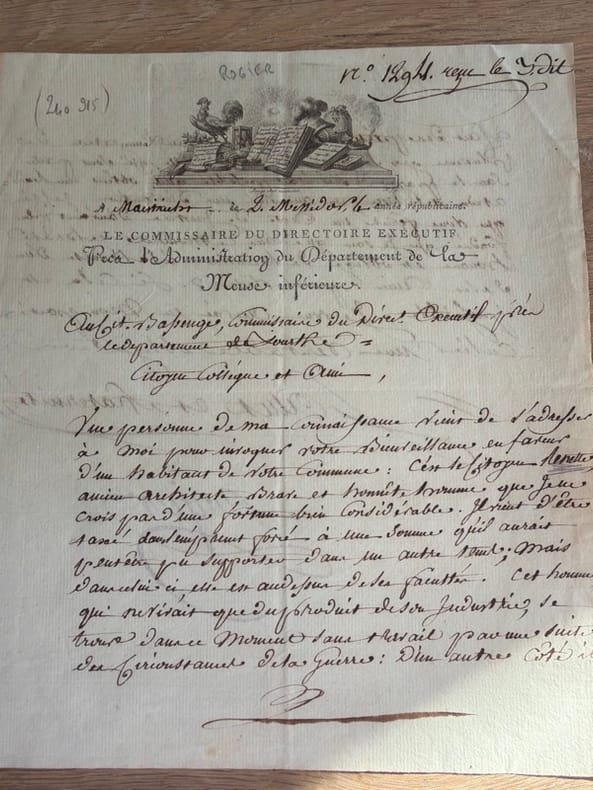 ROGIER
n.º 1294. reçu le 3. dit
(240 915)
A Maestricht le 2. Messidor 4 année républicaine.
LE COMMISSAIRE DU DIRECTOIRE EXÉCUTIF
Près l'Administration du Département de la
Meuse inférieure.
Au Cit. Bassenge, Commissaire du Direct. Executif près
le departement de Lourthe =
Citoyen Collégue et Ami,
Une personne de ma Connaissance vient de s'adresser
à moi pour invoquer votre Bienveillance en faveur
d'un habitant de votre Commune: C'est le Citoyen
ancien architecte, Brave et honnête homme que Je ne
crois pas d'une fortune bien Considérable. Il vient d'être
taxé dans l'emprunt forcé à une Somme qu'il aurait
peutêtre pu supporter dans un autre tems, Mais
dans celui ci, elle est au dessus de ses facultés. Cet homme
qui ne vivait que du produit de son Industrie, se
trouve dans ce Moment sans travail par une suite
des Circonstances de la Guerre: D'un autre Coté il